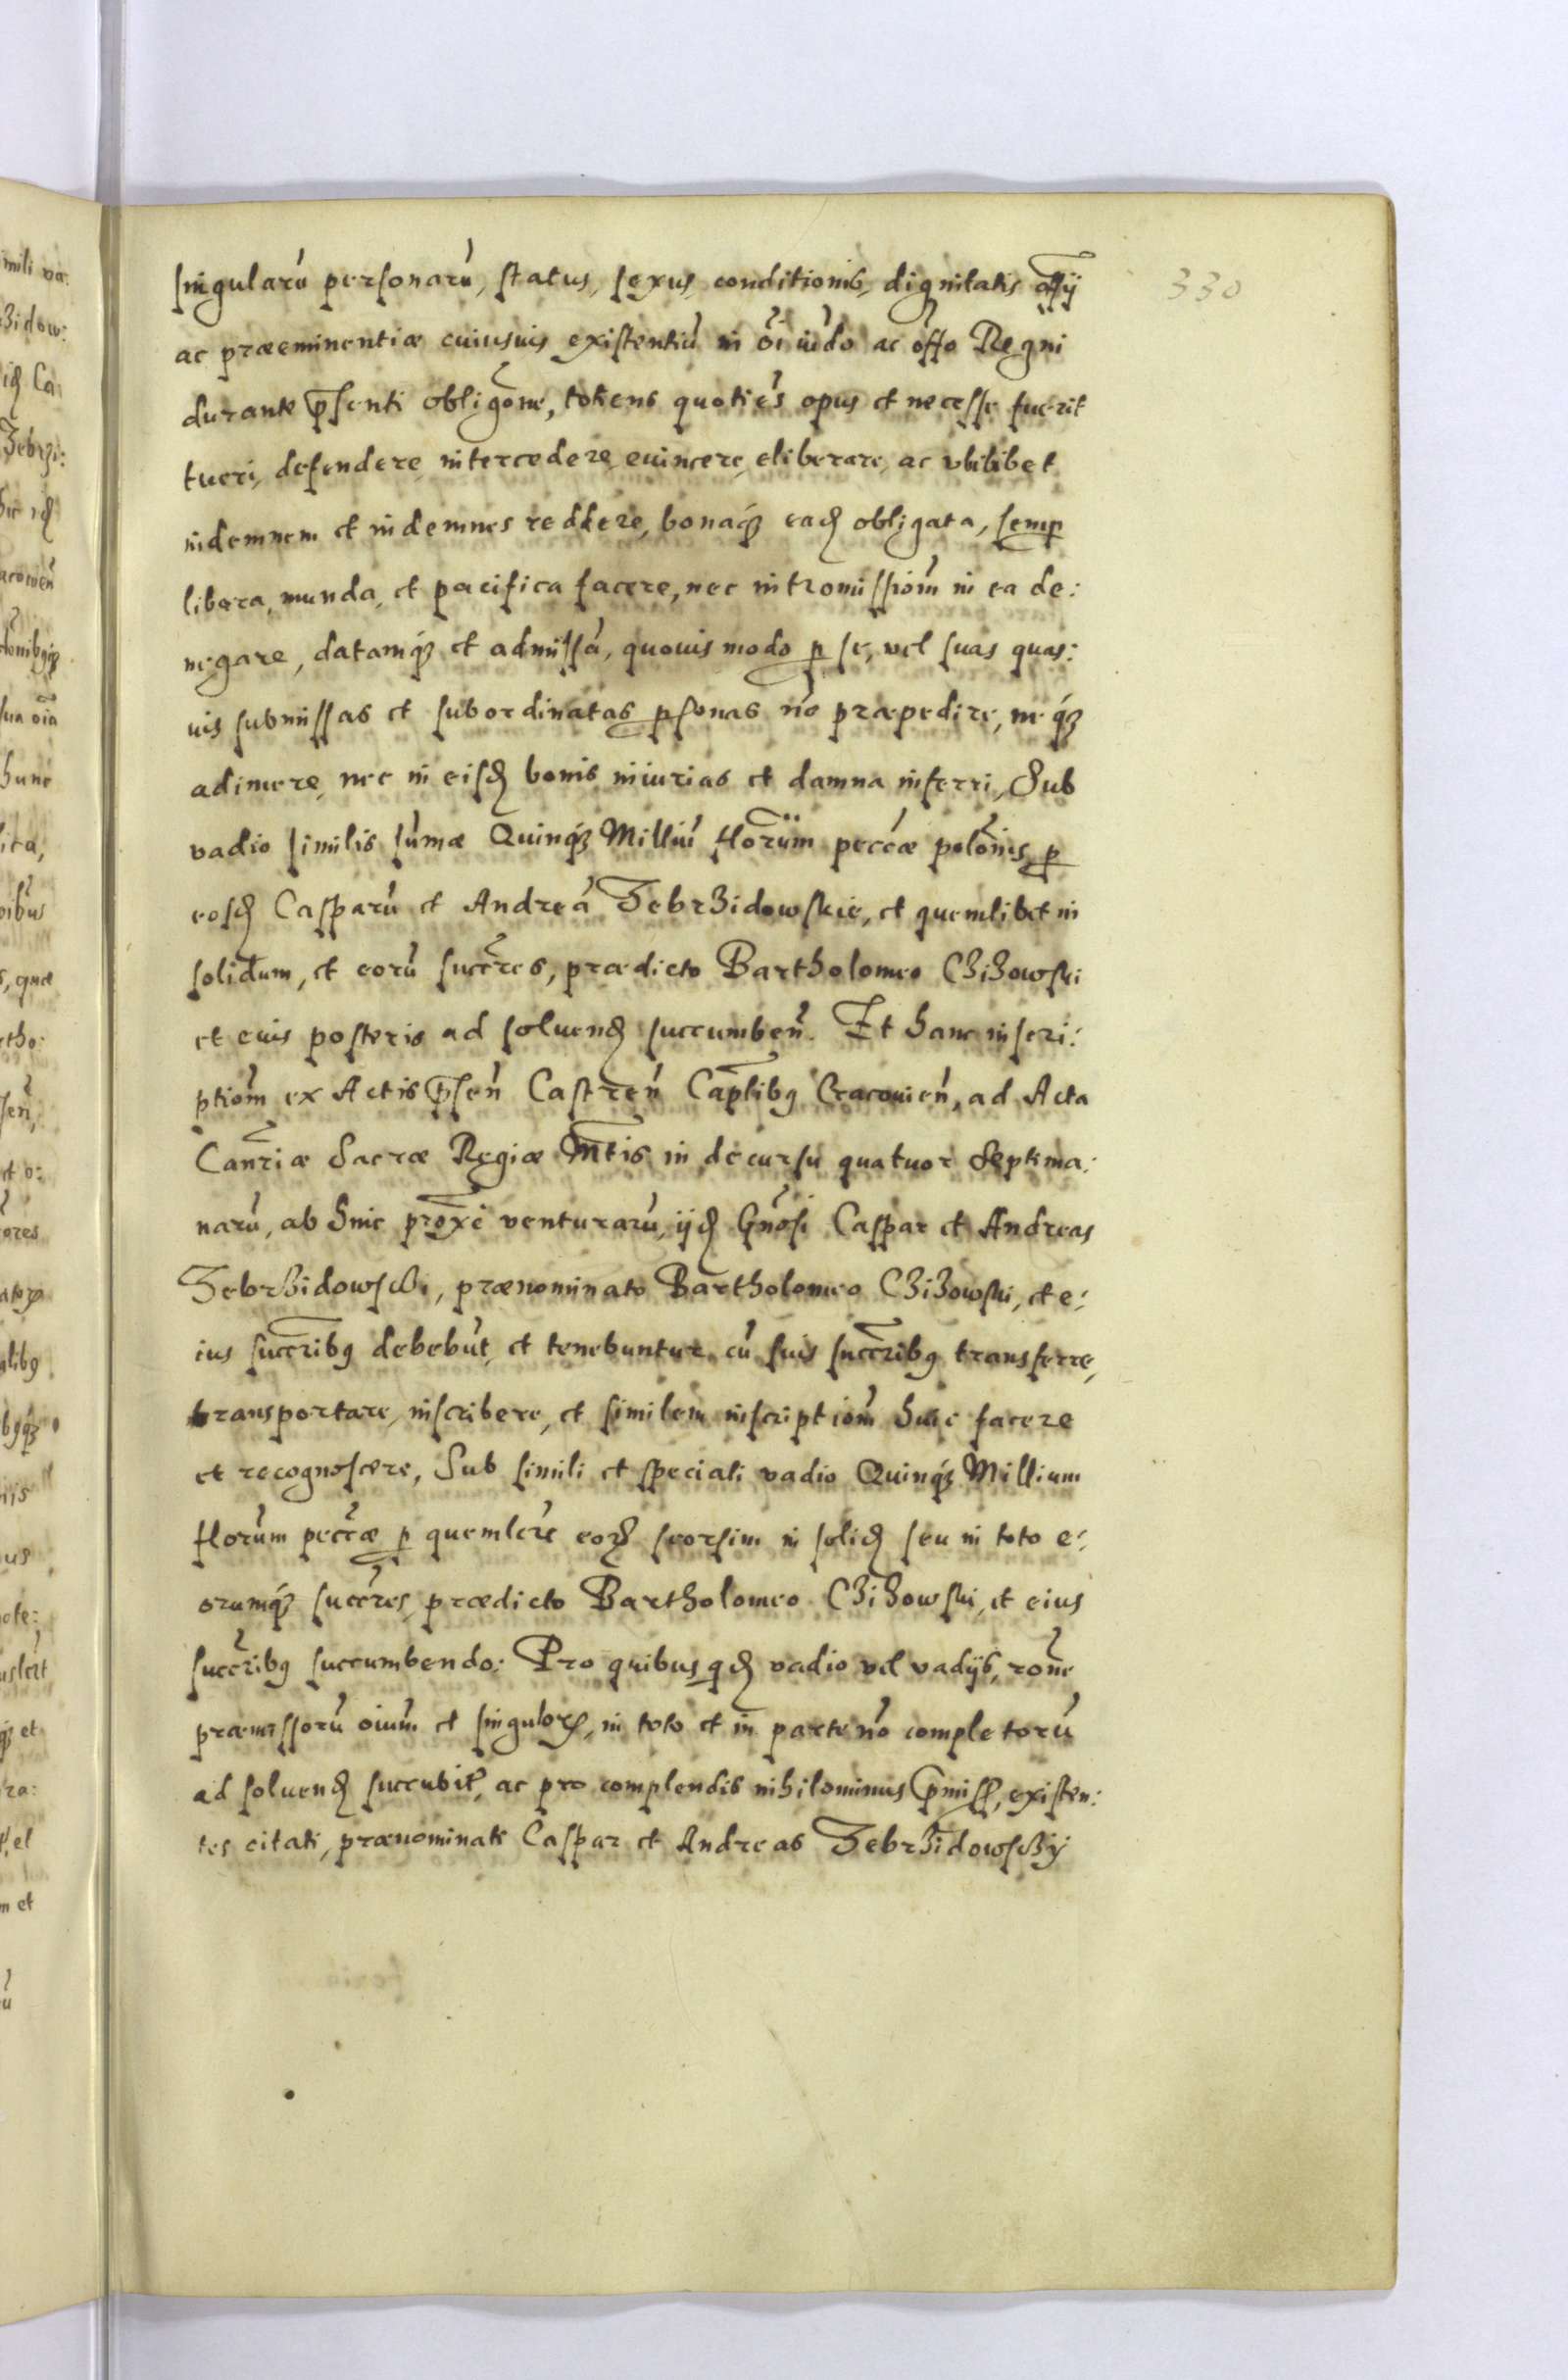 330
singularū personarū, status, sexus, conditionis, dignitatis offij
ac præeminentiæ cuiusuis existentiū in oī iudo ac offo Regni
durante p̄senti obligōne, totiens quotiēs opus et necesse fuerit
tueri, defendere, intercedere, euincere, eliberare, ac vbilibet
indemnem et indemnes reddere, bonaq₃ eadꝫ obligata, semꝑ
libera, munda, et pacifica facere, nec intromissiom̄ in ea de:
negare, datamq₃ et admissā, quouis modo ꝑ se, vel suas quas:
uis submissas et subordinatas ꝑsonas nō præpedire, neq₃
adimere, nec in eisdꝫ bonis iniurias et damna inferri, Sub
vadio similis sūmæ Quinq₃ Milliū florūm peccæ polōnis ꝑ
eosdꝫ Casparū et Andreā Zebrzidowskie, et quemlibet in
solidum, et eorū succres, prædicto Bartholomeo Chizowski
et euis posteris ad soluendꝫ succumben̄. Et hanc inscri:
ptiom̄ ex Actis p̄sen̄ Castren̄ Captlibꝯ Cracouien̄, ad Acta
Canriæ Sacræ Regiæ Mtis in decursu quatuor Septima:
narū, ab hinc proxē venturarū, ijdꝫ Gnōsi Caspar et Andreas
Zebrzidowschi, prænominato Bartholomeo Chizowski, et e:
ius succribꝯ debebūt, et tenebuntur cū suis succribꝯ transferre,
transportare, inscribere, et similem inscriptiom̄ huic facere
et recognoscere, Sub simili et speciali vadio Quinq₃ Millium
florūm peccæ ꝑ quemlēt eorꝝ seorsim in solidꝫ seu in toto e:
orumq₃ succres, prædicto Bartholomeo Chihowski, et eius
succribꝯ succumbendo: Pro quibus qdꝫ vadio vel vadijs, rōne
præmissorū oium̄ et singulorꝝ, in toto et in parte nō completorū
ad soluendꝫ succubit̄, ac pro complendis nihilominus p̄miss̄, existen:
tes citati, prænominati Caspar et Andreas Zebrzidowschÿ